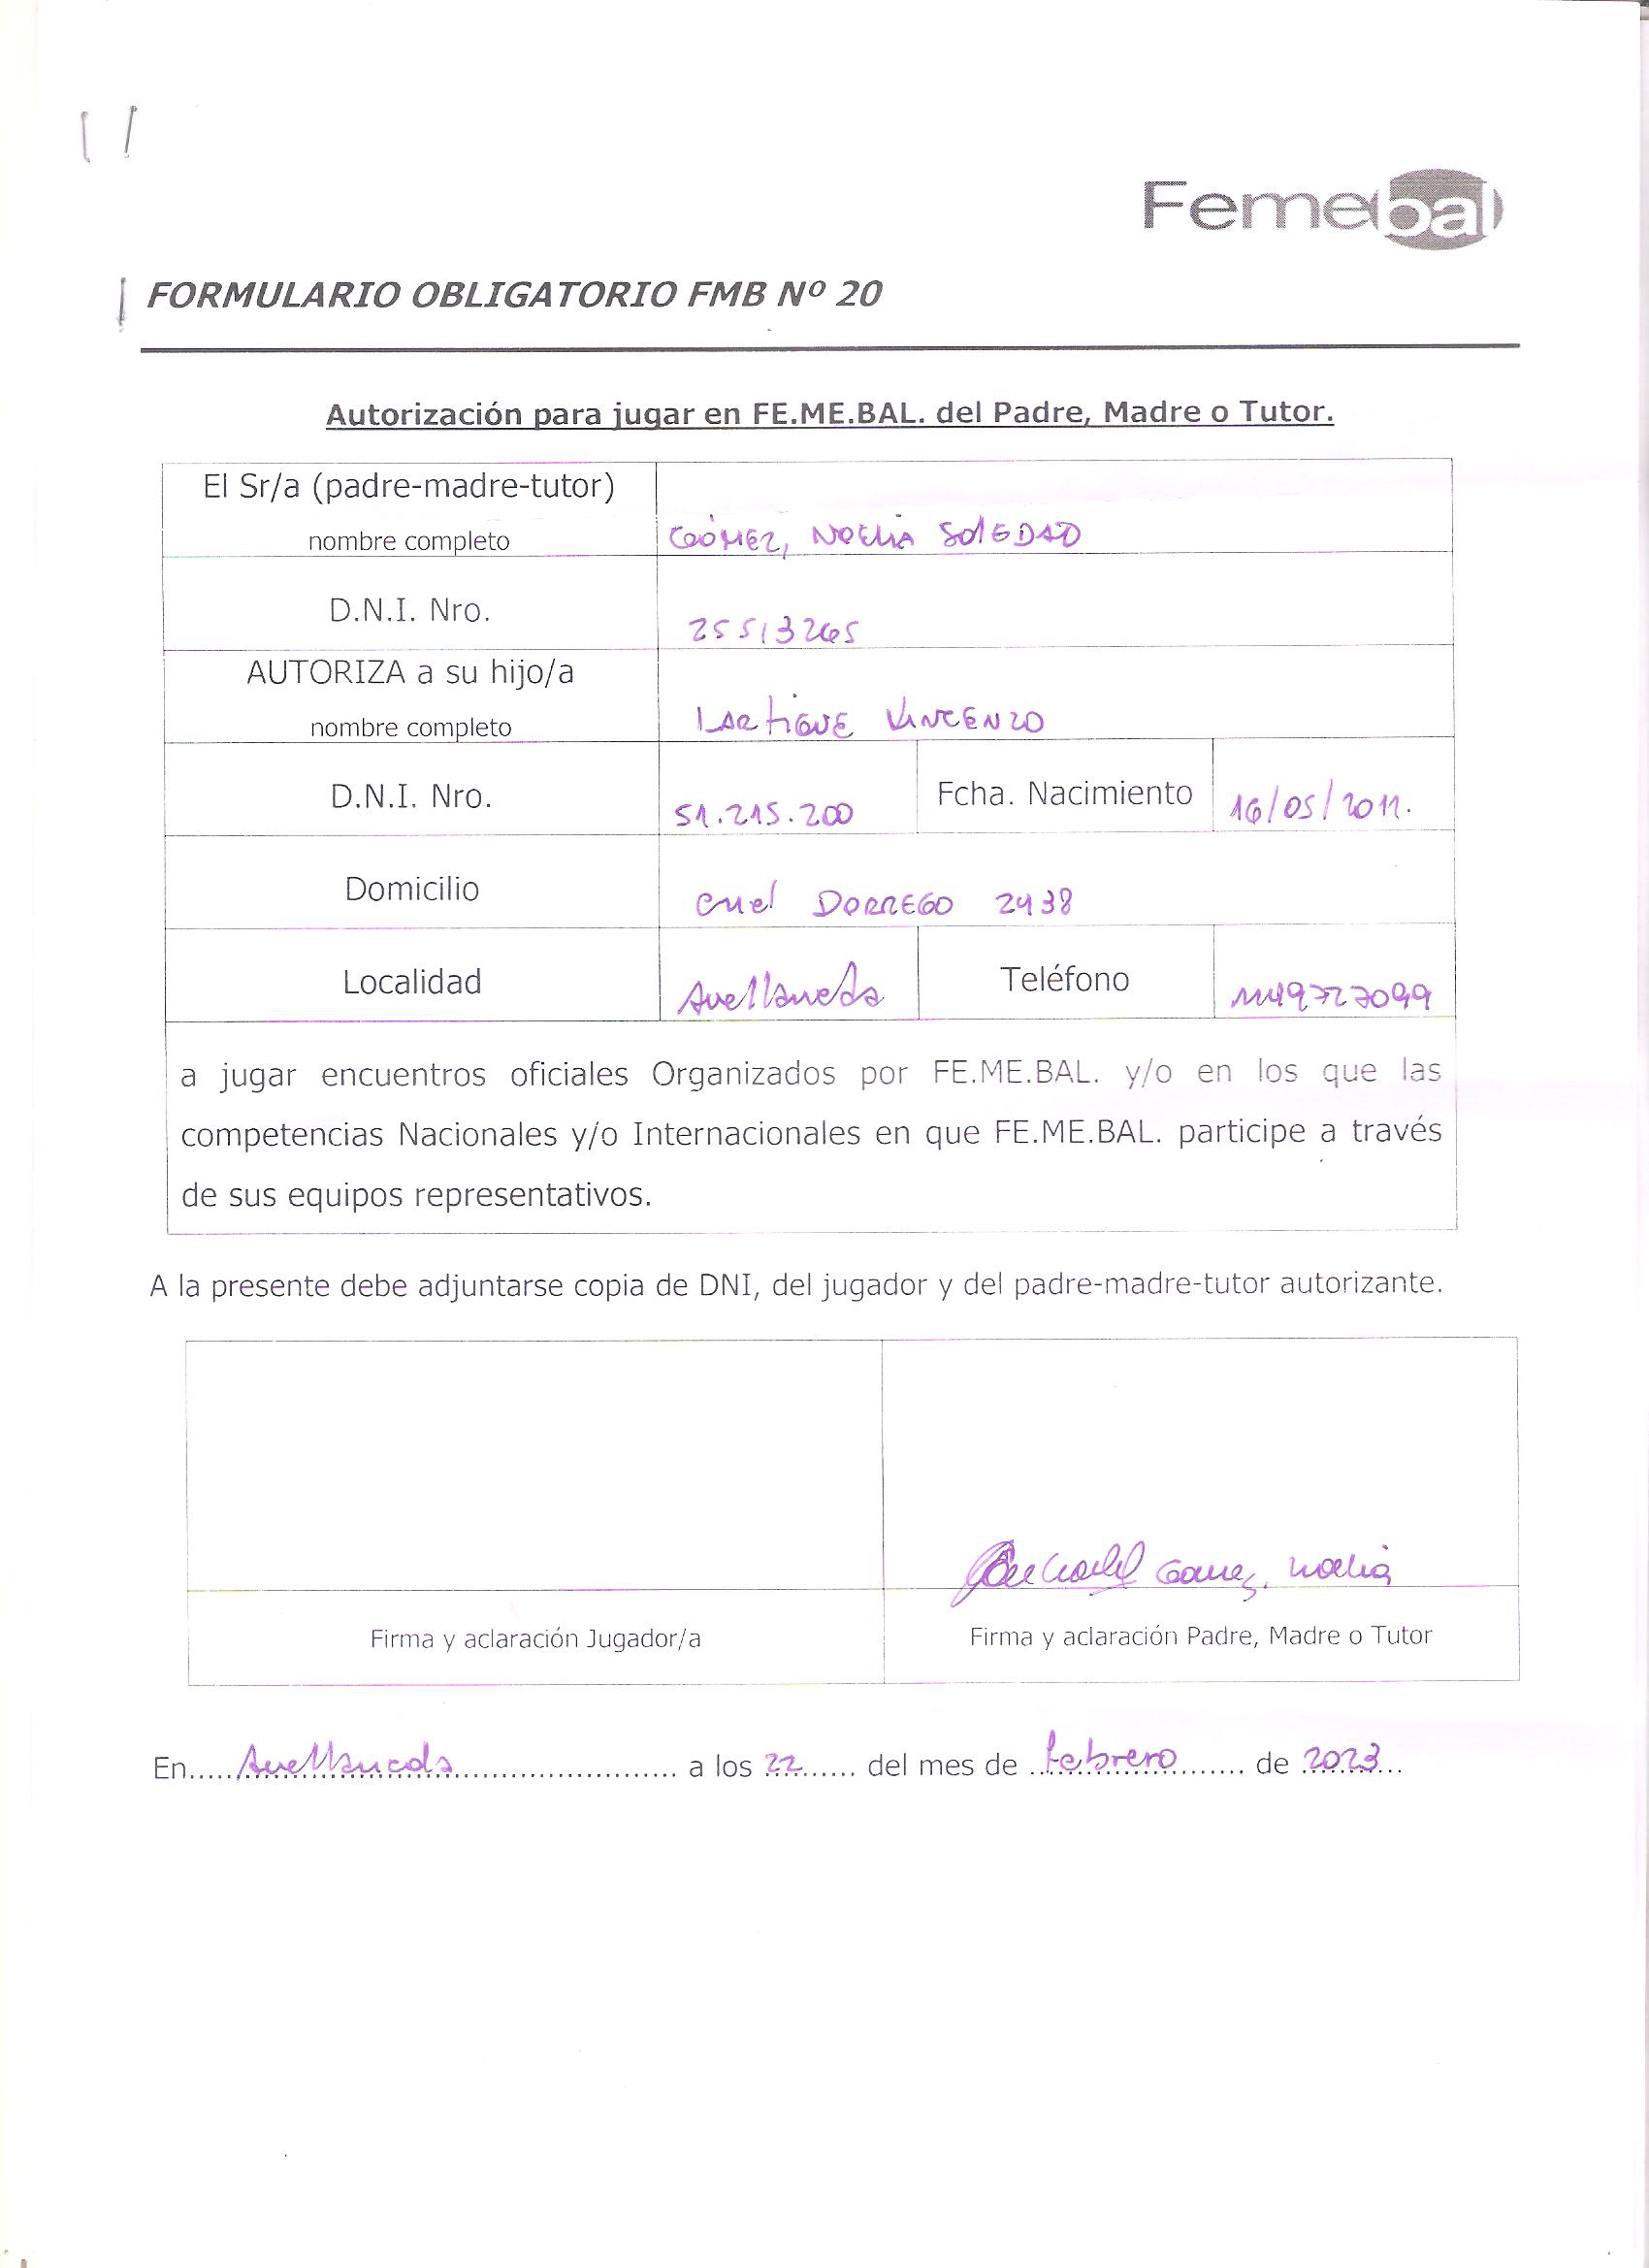 Femebal
FORMULARIO OBLIGATORIO FMB Nº 20
Autorización para jugar en FE.ME.BAL. del Padre, Madre o Tutor.
El Sr/a (padre-madre-tutor)
nombre completo GÓMEZ, NOELIA SOLEDAD
D.N.I. Nro. 25513265
AUTORIZA a su hijo/a
nombre completo LARTIGUE VINCENZO
D.N.I. Nro. 51.215.200 Fcha. Nacimiento 16/05/2011.
Domicilio Cnel DORREGO 2438
Localidad Avellaneda Teléfono 1149727099
a jugar encuentros oficiales Organizados por FE.ME.BAL. y/o en los que las
competencias Nacionales y/o Internacionales en que FE.ME.BAL. participe a través
de sus equipos representativos.
A la presente debe adjuntarse copia de DNI, del jugador y del padre-madre-tutor autorizante.
Gomez, Noelia
Firma y aclaración Jugador/a Firma y aclaración Padre, Madre o Tutor
En.....Avellaneda.......... a los 22...... del mes de ..febrero....... de 2023...